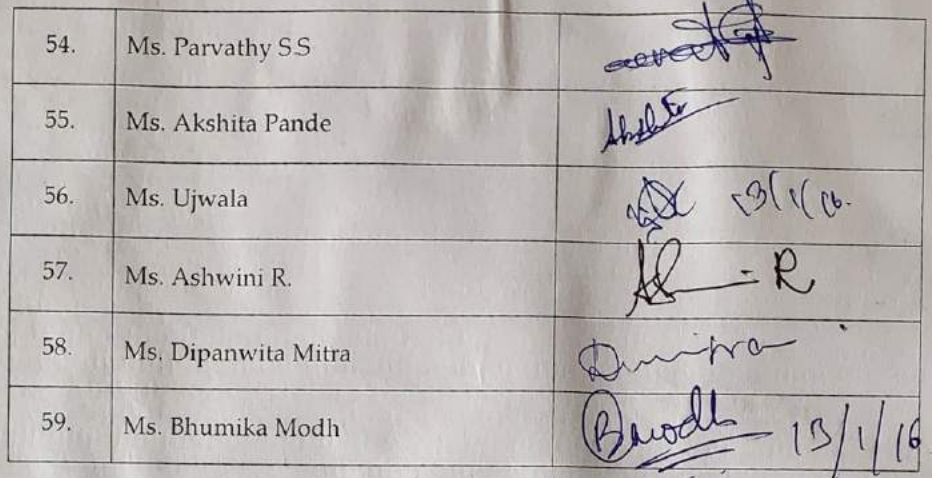 54. Ms. Parvathy S.S
55. Ms. Akshita Pande
56. Ms. Ujwala 13/1/16.
57. Ms. Ashwini R. R
58. Ms. Dipanwita Mitra
59. Ms. Bhumika Modh Bmodh 13/1/16